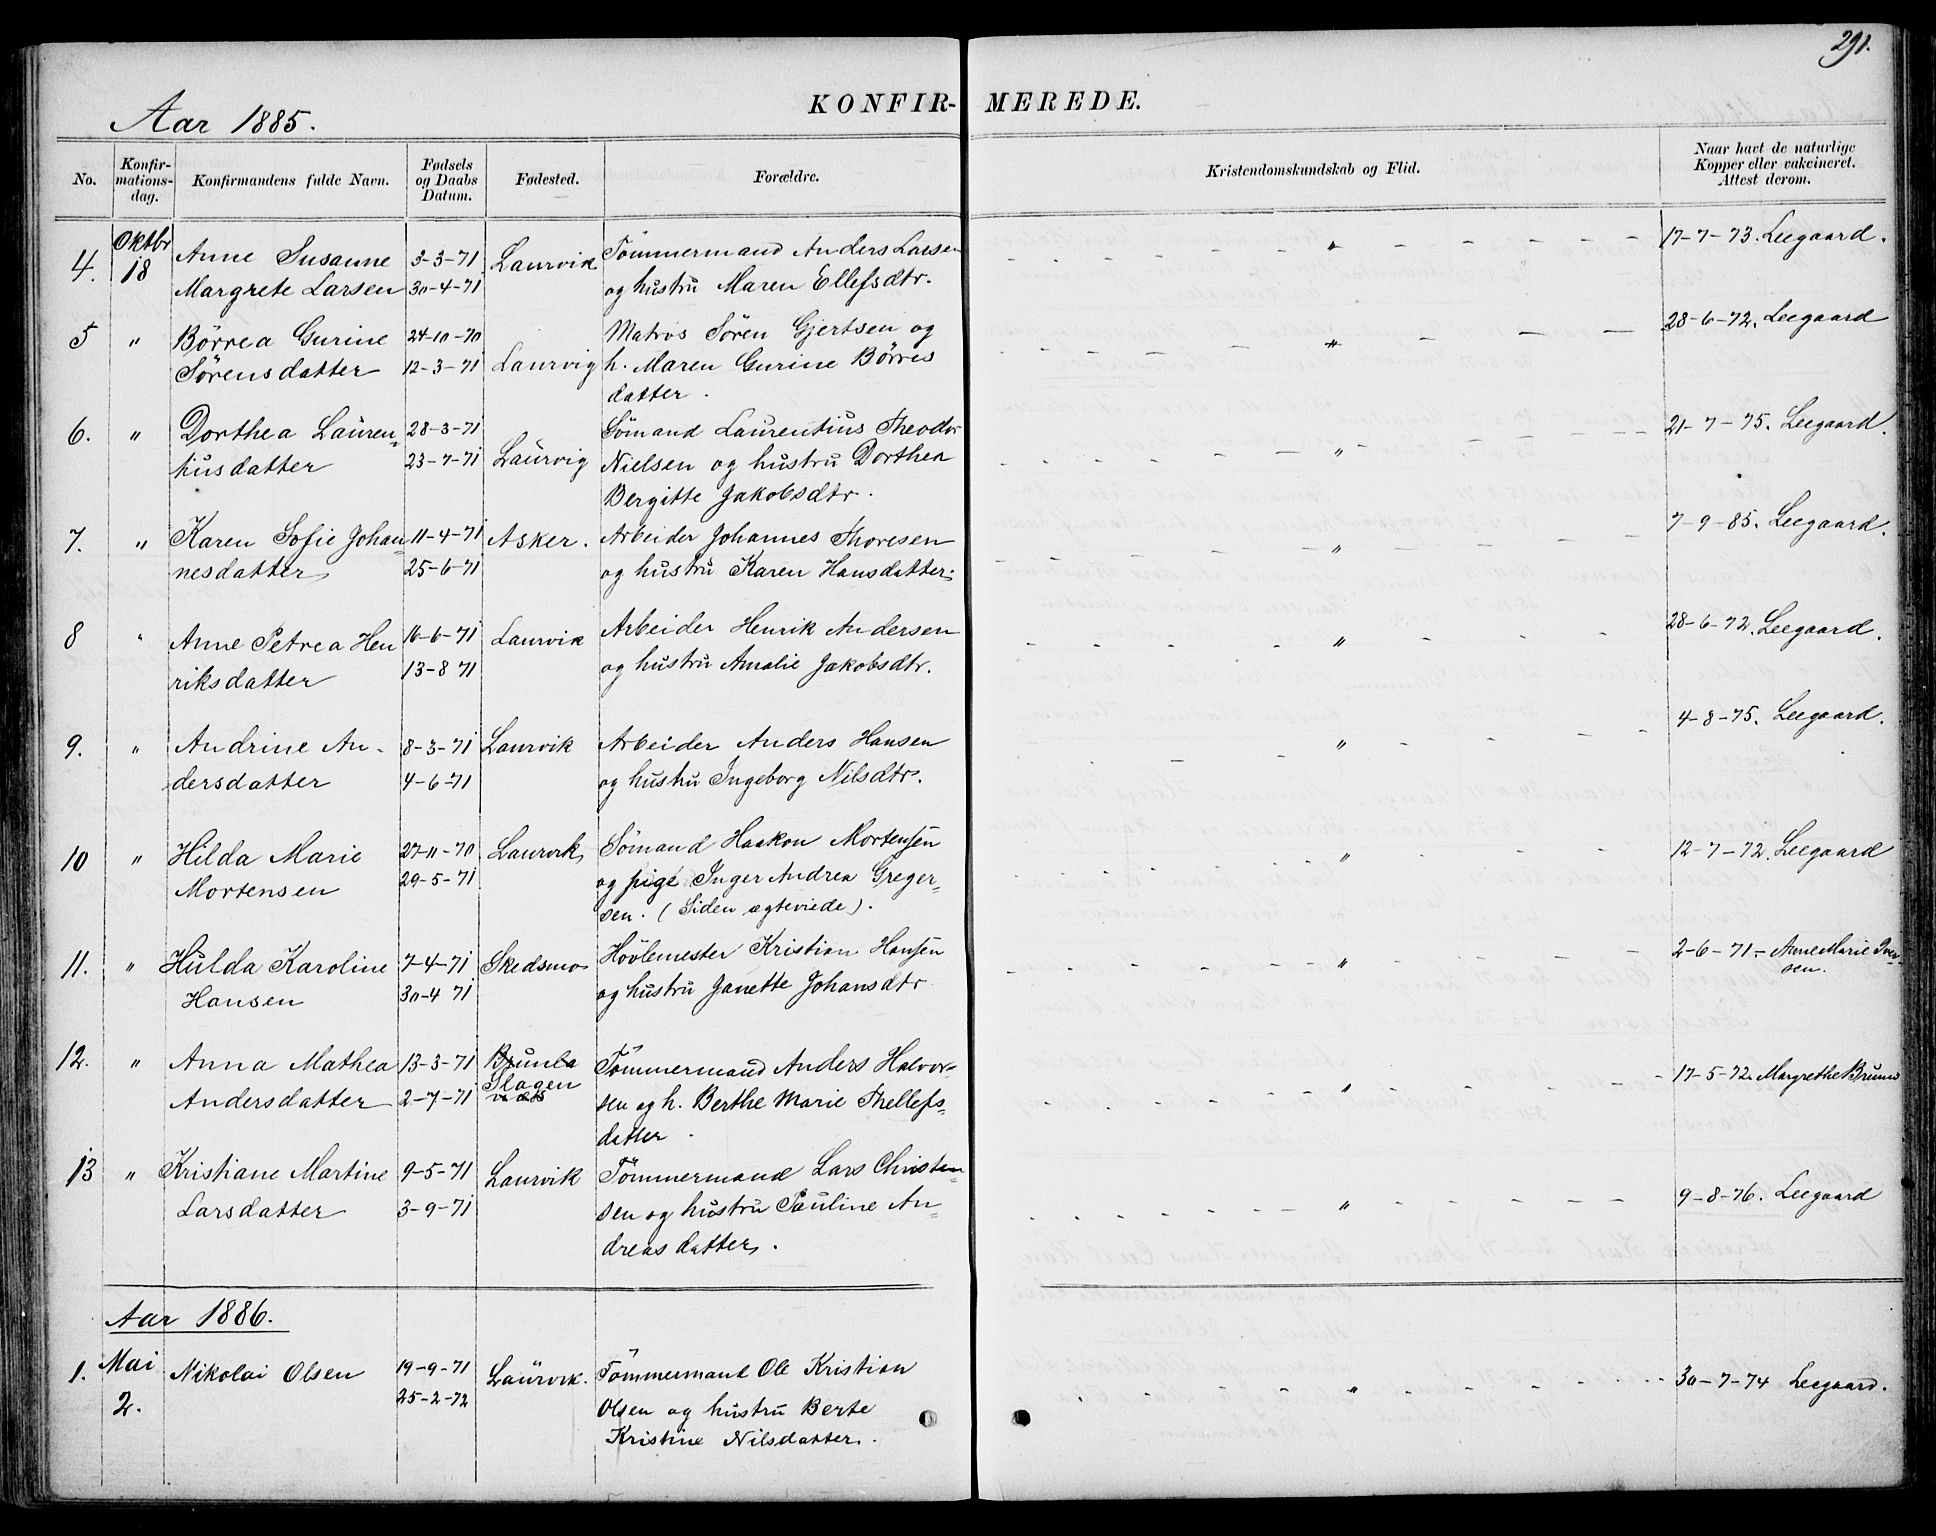 291.
KONFIRMEREDE.
Aar 1885.
No. | Konfirmationsdag. | Konfirmandens fulde Navn. | Fødsels og Daabs Datum. | Fødested. | Forældre. | Kristendomskundskab og Flid. | Naar havt de naturlige Kopper eller vakcineret. Attest derom.
Oktbr
4. 18 Anne Susanne 3-3-71 Laurvik Tömmermand Anders Larsen " 17-7-73. Leegaard.
Margrete Larsen 30-4-71 og hustru Maren Ellefsdtr.
5 " Börrea Gurine 24-10-70 Matros Sören Gjertsen og " 28-6-72. Leegaard
Sörensdatter 12-3-71 Laurvig h. Maren Gurine Börres
datter.
6. " Dorthea Lauren= 28-3-71 Sömand Laurentius Theodor 21-7-75. Leegaard.
tiusdatter 23-7-71 Laurvig Nielsen og hustru Dorthea "
Bergitte Jakobsdtr.
7. " Karen Sofie Johan= 11-4-71 Asker. Arbeider Johannes Thoresen " 7-9-85. Leegaard.
nesdatter 25-6-71 og hustru Karen Hansdatter.
8 " Anne Petrea Hen 16-6-71 Laurvik Arbeider Henrik Andersen " 28-6-72. Leegaard.
riksdatter 13-8 71 og hustru Amalie Jakobsdtr.
9. " Andrine An- 8-3-71 Laurvik Arbeider Anders Hansen " 4-8-75. Leegaard.
dersdatter 4-6-71 og hustru Ingeborg Nilsdtr.
10 " Hilda Marie 27-11-70 Laurvik Sömand Haakon Mortensen " 12-7-72. Leegaard
Mortensen 29-5-71 og pige Inger Andrea Greger=
sen. (Siden ægteviede).
11. " Hulda Karoline 7-4-71 Skedsmo Hövlemester Kristian Hansen " 2-6-71.- Anne Marie Iver=
Hansen 30-4 71 og hustru Janette Johansdtr sen.
12. " Anna Mathea 13-3-71 Brunla Tömmermand Anders Halvor= " 17-5-72. Margrethe Bruun
Andersdatter 2-7-71 Slagen sen og h. Berthe Marie Thellefs=
datter.
13 " Kristiane Martine 9-5-71 Laurvik Tömmermand Lars Christen= " 9-8-76. Leegaard
Larsdatter 3-9-71 sen og hustru Pauline An=
dreasdatter.
Aar 1886.
1. Mai Nikolai Olsen 19-9-71 Laurvik. Tömmermand Ole Kristian " 30-7-74 Leegaard.
2. 25-2-72 Olsen og hustru Berte
Kristine Nilsdatter.